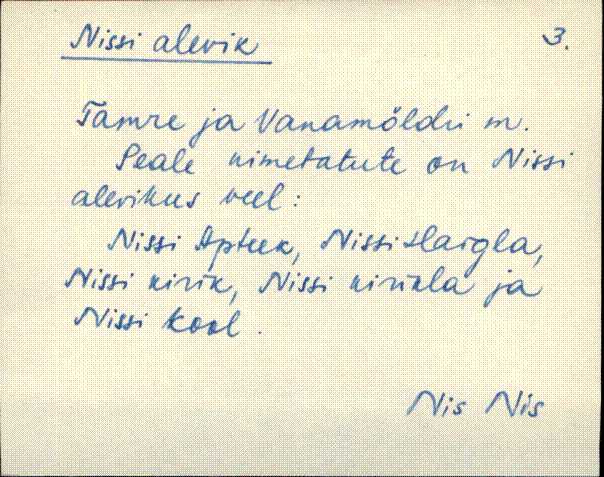 Nissi alevik
3.
Tamre ja Vanamöldri m.
Peale nimetatute on Nissi
alevikus veel:
Nissi Apteek, Nissi Hargla,
Nissi kirik, Nissi kirikla ja
Nissi kool.
Nis Nis